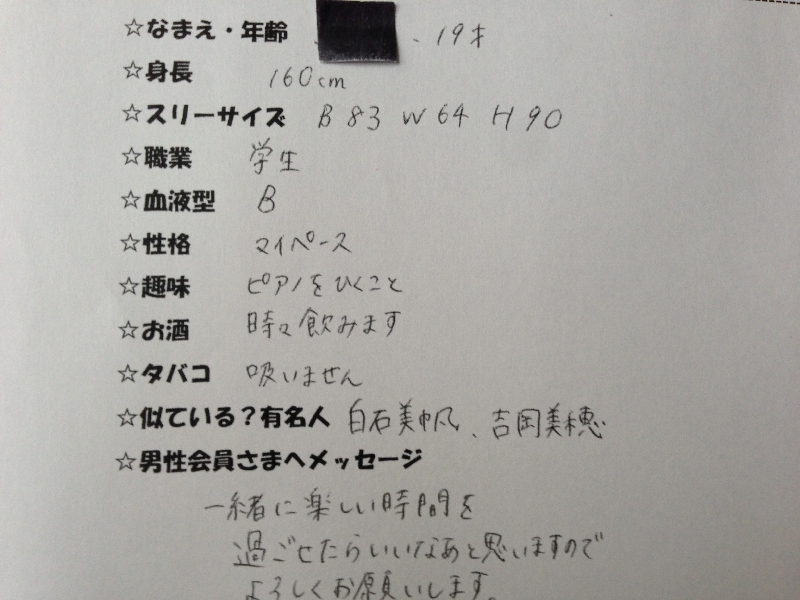 ☆なまえ・年齢 、19才
☆身長 160cm
☆スリーサイズ B 83 W 64 H 90
☆職業 学生
☆血液型 B
☆性格 マイペース
☆趣味 ピアノをひくこと
☆お酒 時々飲みます
☆タバコ 吸いません
☆似ている?有名人 白石美帆、吉岡美穂
☆男性会員さまへメッセージ
一緒に楽しい時間を
過ごせたらいいなあと思いますので
よろしくお願いします。